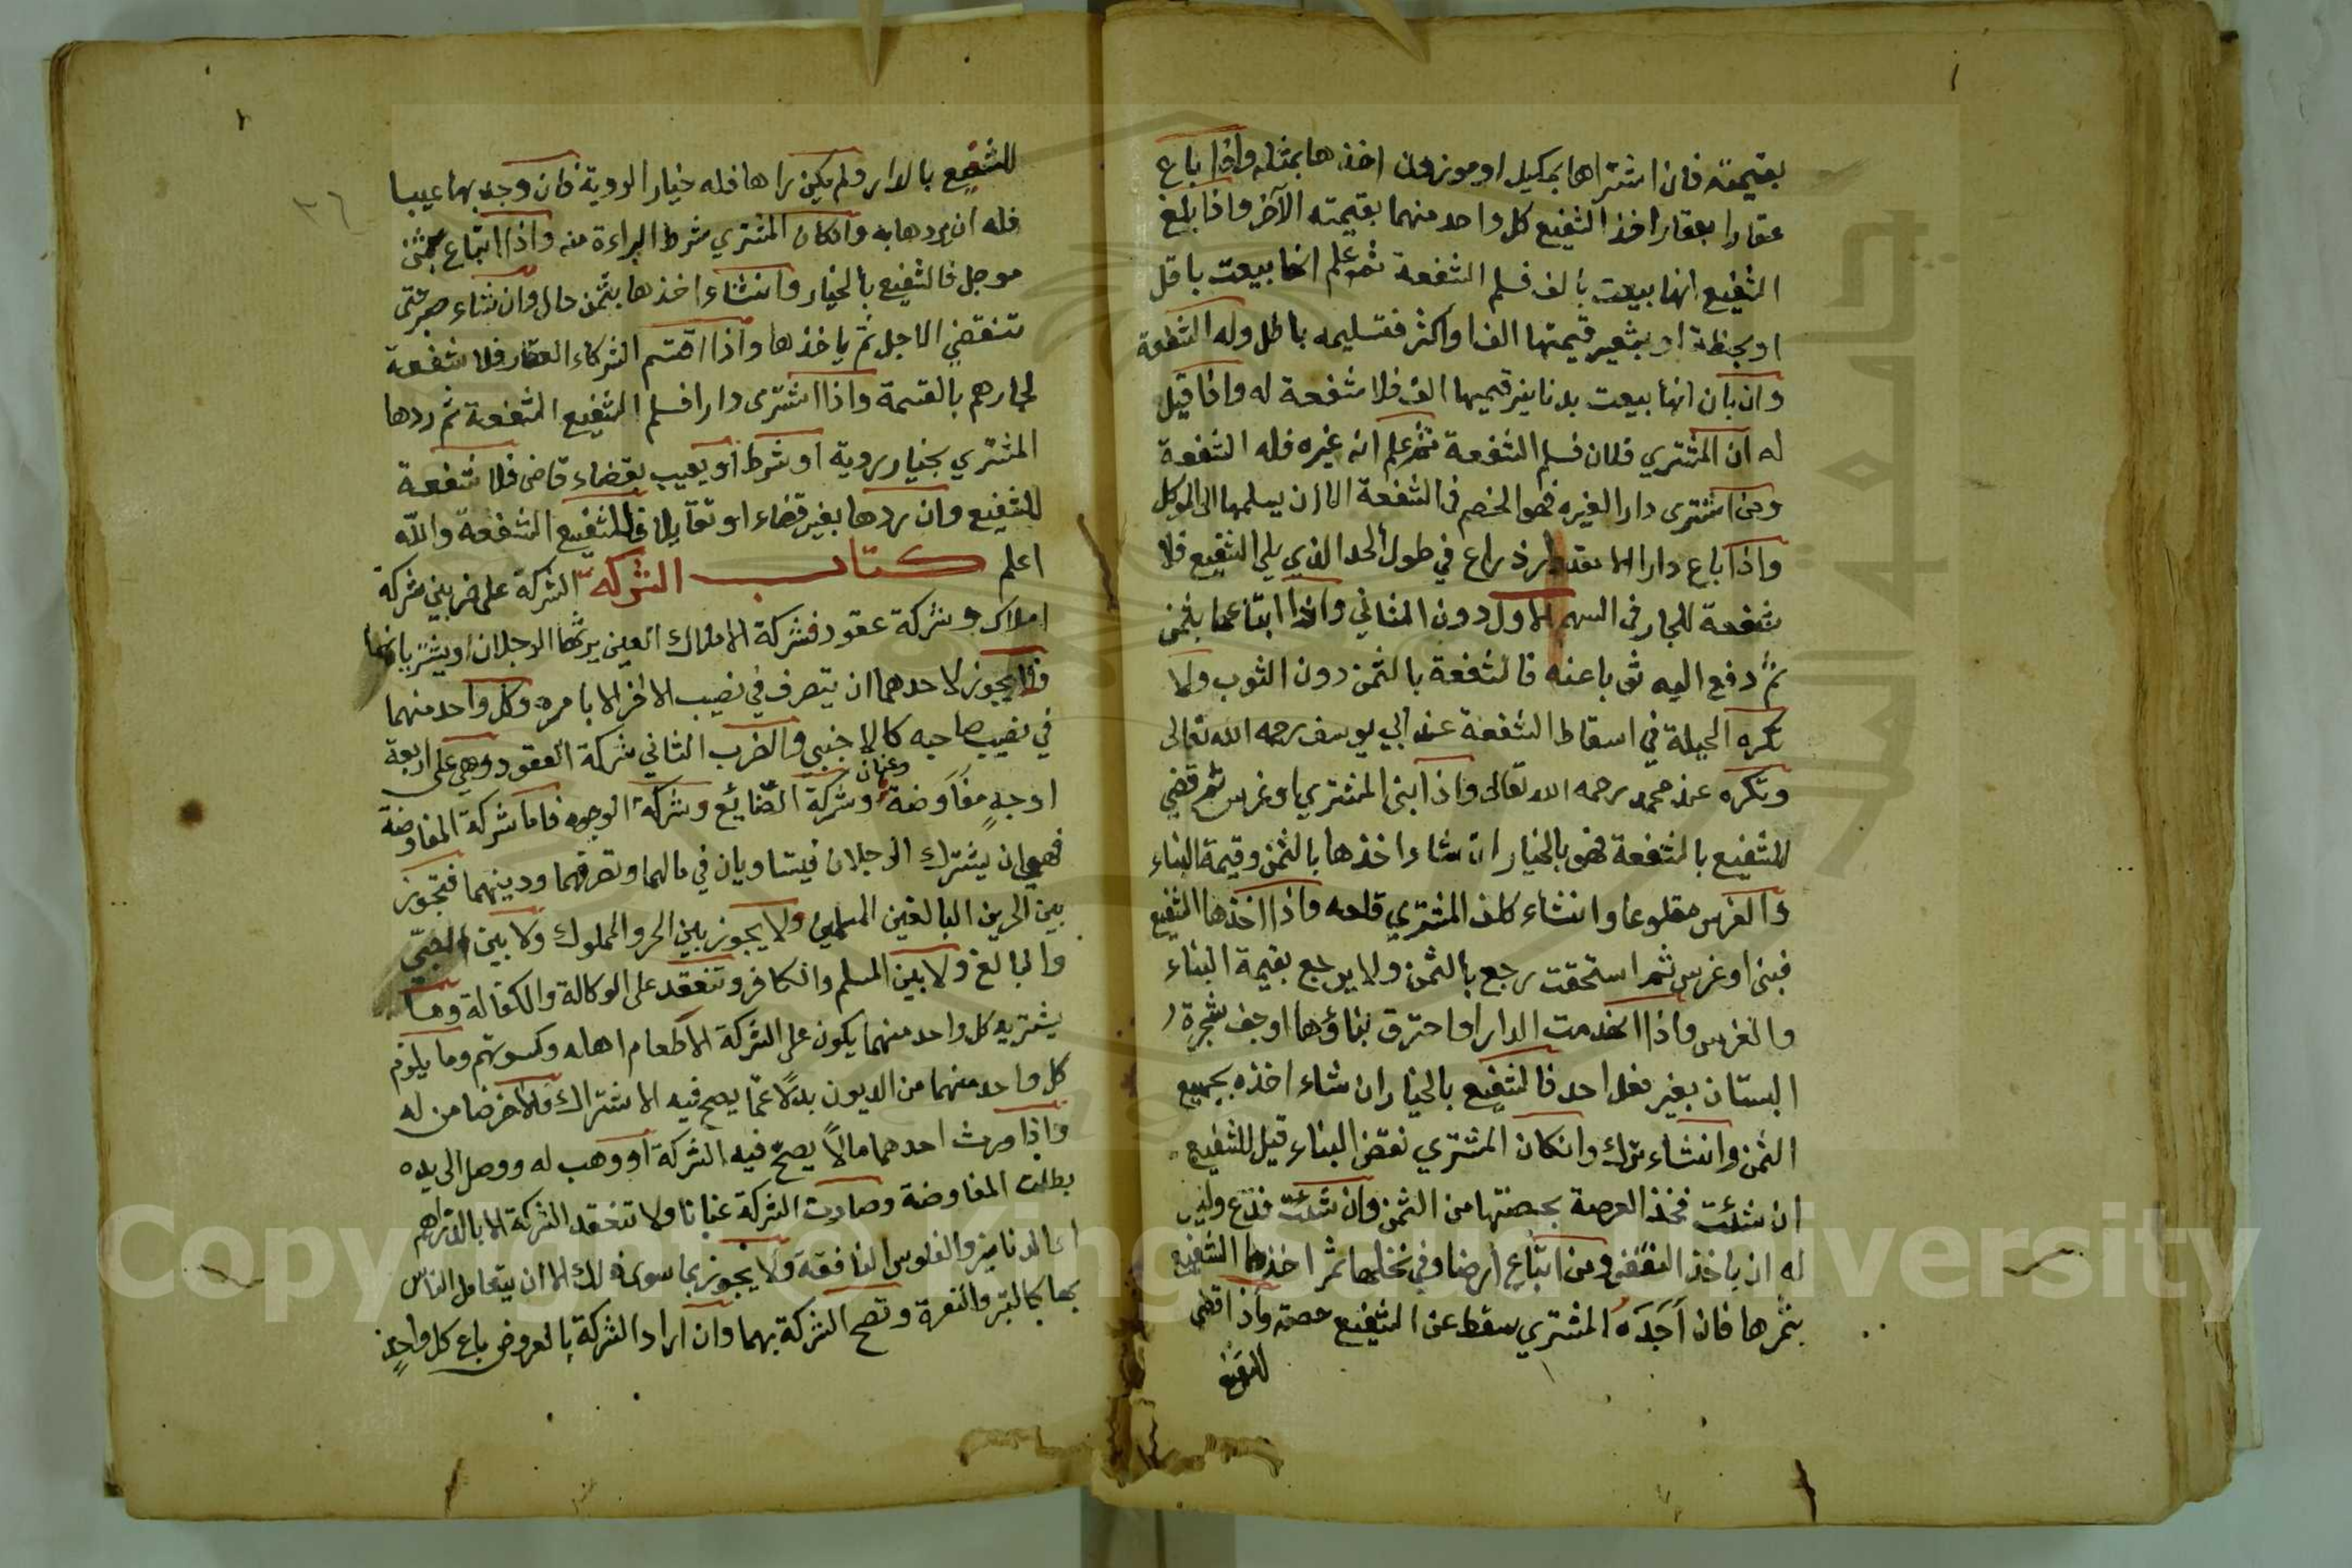 بقيمته فان اشتراها بمكيل او موزون اخذها بمثله واذا باع
عقارا بعقار اخذ الشفيع كل واحد منهما بقيمته الآخر واذا بلغ
الشفيع انها بيعت بالف فسلم الشفعة ثم علم انها بيعت باقل
او بحنطة او بشعير قيمتها الف او اكثر فتسليمه باطل وله الشفعة
وان بان انها بيعت بدنانير قيمتها الف فلا شفعة له واذا قيل
له ان المشتري فلان فسلم الشفعة ثم علم انه غيره فله الشفعة
ومن اشترى دارا لغيره فهو الخصم في الشفعة الا ان يسلمها الى الموكل
واذا باع دارا الا مقدار ذراع في طول الحد الذي يلي الشفيع فلا
شفعة للجار في السهم الاول دون الثاني واذا ابتاعها بثمن
ثم دفع اليه ثوبا عنه فالشفعة بالثمن دون الثوب ولا
تكره الحيلة في اسقاط الشفعة عند ابي يوسف رحمه الله تعالى
وتكره عند محمد رحمه الله تعالى واذا بنى المشتري او غرس ثم قضي
للشفيع بالشفعة فهو بالخيار ان شاء اخذها بالثمن وقيمة البناء
والغرس مقلوعا وانشاء كلف المشتري قلعه واذا اخذها الشفيع
فبنى او غرس ثم استحقت رجع بالثمن ولا يرجع بقيمة البناء
والغرس واذا انهدمت الدار او احترق بناؤها او جف شجرة
البستان بغير فعل احد فالشفيع بالخيار ان شاء اخذه بجميع
الثمن وانشاء ترك وانكان المشتري نقض البناء قيل للشفيع
ان شئت فخذ العرصة بحصتها من الثمن وان شئت فدع وليس
له ان ياخذ النقض ومن ابتاع ارضا وفي نخلها ثمر اخذها الشفيع
بثمرها فان اَجَدَهُ المشتري سقط عن الشفيع حصته واذا قضي
للشفيع
٣٦
للشفيع بالدار ولم يكن راها فله خيار الروية فان وجد بها عيبا
فله ان يردها به وانكان المشتري شرط البراءة منه واذا ابتاع بثمن
موجل فالشفيع بالخيار وانشاء اخذها بثمن حال وان شاء صبر حتى
تنقضي الاجل ثم ياخذها واذا اقتسم الشركاء العقار فلا شفعة
لجارهم بالقسمة واذا اشترى دارا فسلم الشفيع الشفعة ثم ردها
المشتري بخيار روية او شرط او بعيب بقضاء قاضى فلا شفعة
للشفيع وان ردها بغير قضاء او تقايلا فللشفيع الشفعة والله
اعلم كتاب الشركه الشركة على ضربين شركة
املاك وشركة عقود فشركة الاملاك العين يرثها الرجلان او يشتريانها
فلا يجوز لاحدهما ان يتصرف في نصيب الاخر الا بامره وكل واحد منهما
في نصيب صاحبه كالاجنبي والضرب الثاني شركة العقود وهي على اربعة
اوجهٍ مفاوضة وعنان وشركة الصنايع وشركة الوجوه فاما شركة المفاوضة
فهي ان يشترك الرجلان فيتساويان في مالهما وتصرفهما ودينهما فتجوز
بين الحرين البالغين المسلمين ولا يجوز بين الحر والمملوك ولا بين الصبي
والبالغ ولا بين المسلم والكافر وتنعقد على الوكالة والكفالة وما
يشتريه كل واحد منهما يكون على الشركة الا طعام اهله وكسوتهم وما يلزم
كل واحد منهما من الديون بدلًا عمّا يصح فيه الاشتراك فالاخر ضامن له
واذا ورث احدهما مالًا يصحّ فيه الشركة او وهب له ووصل الى يده
بطلت المفاوضة وصارت الشركة عنانا ولا تنعقد الشركة الا بالدراهم
والدنانير والفلوس النافقة ولا يجوز بما سوى ذلك الا ان يتعامل الناس
بها كالتبر والنقرة وتصح الشركة بهما وان اراد الشركة بالعروض باع كل واحدٍ
Copyright © King Saud University